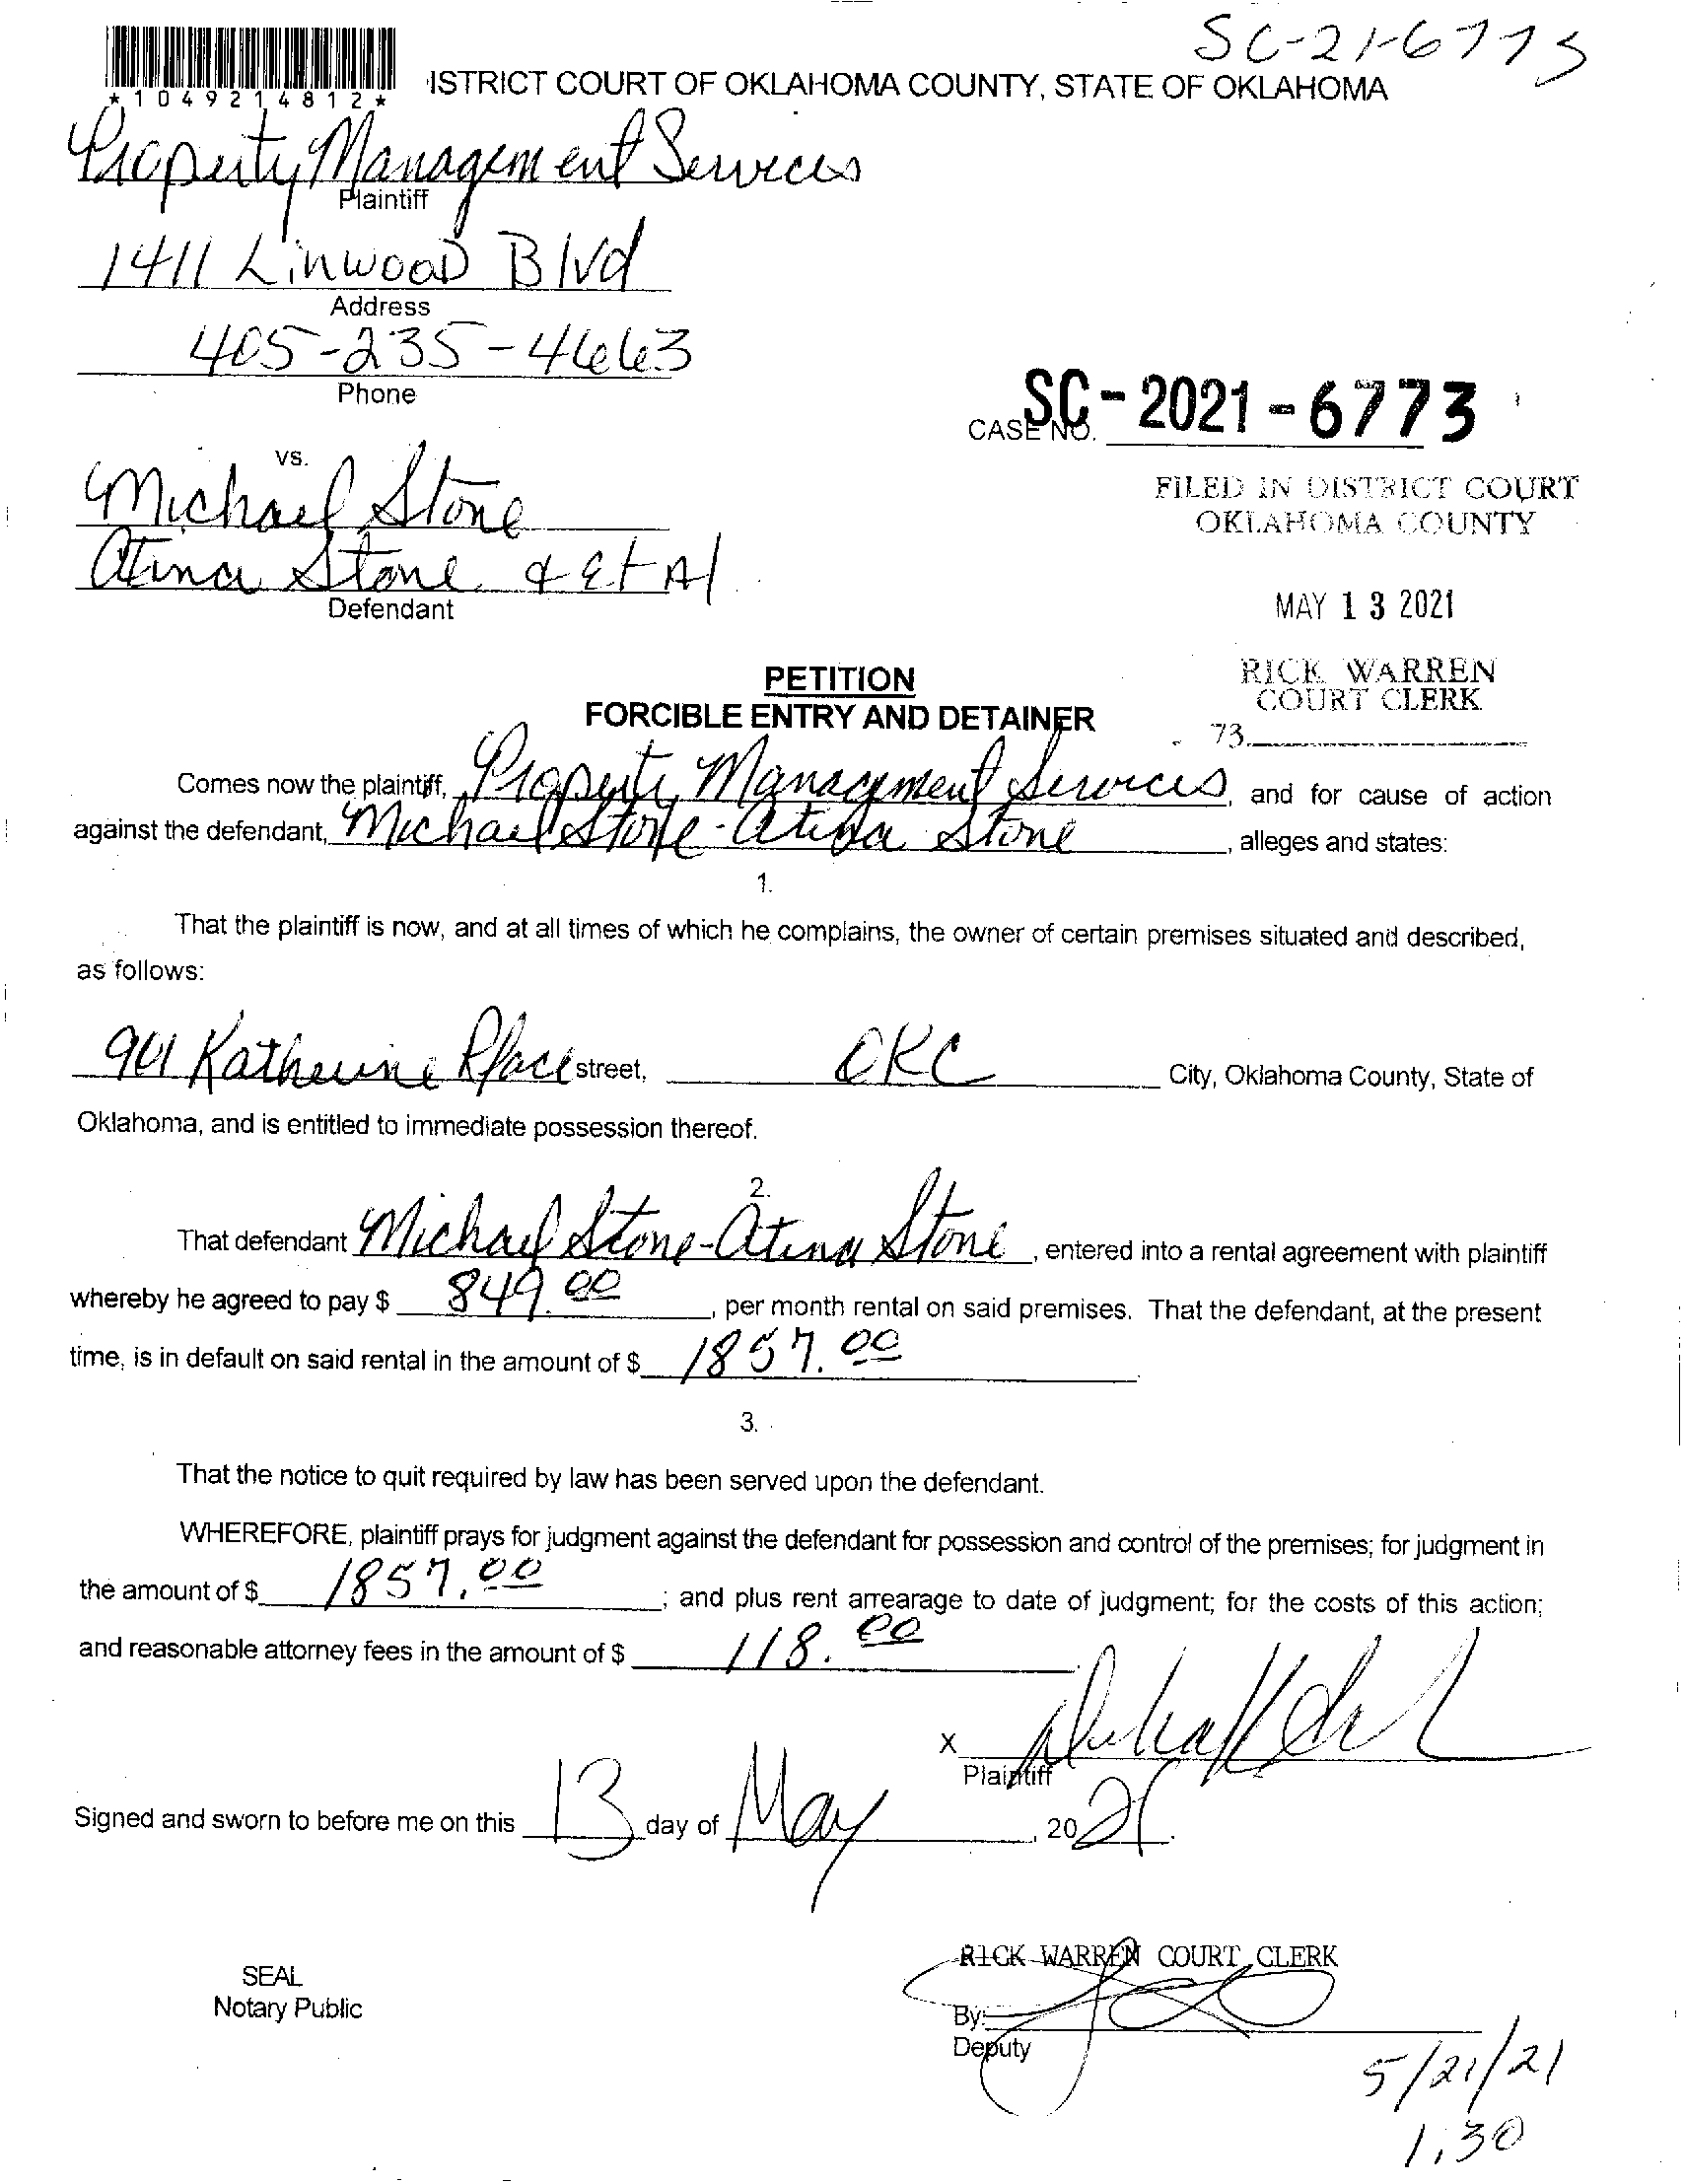 SC-21-6773
*1049214812*
ISTRICT COURT OF OKLAHOMA COUNTY, STATE OF OKLAHOMA
Property Management Services
Plaintiff
1411 Linwood Blvd
Address
405-235-4663
Phone
CASE NO. SC-2021-6773
vs.
FILED IN DISTRICT COURT
OKLAHOMA COUNTY
Michael Stone
Atina Stone & Et Al
Defendant
MAY 13 2021
RICK WARREN
COURT CLERK
73
PETITION
FORCIBLE ENTRY AND DETAINER
Comes now the plaintiff, Property Management Services, and for cause of action
against the defendant, Michael Stone - Atina Stone, alleges and states:
1.
That the plaintiff is now, and at all times of which he complains, the owner of certain premises situated and described,
as follows:
901 Katherine Place street, OKC City, Oklahoma County, State of
Oklahoma, and is entitled to immediate possession thereof.
2.
That defendant Michael Stone - Atina Stone, entered into a rental agreement with plaintiff
whereby he agreed to pay $ 849.00, per month rental on said premises. That the defendant, at the present
time, is in default on said rental in the amount of $ 1857.00
3.
That the notice to quit required by law has been served upon the defendant.
WHEREFORE, plaintiff prays for judgment against the defendant for possession and control of the premises; for judgment in
the amount of $ 1857.00; and plus rent arrearage to date of judgment; for the costs of this action;
and reasonable attorney fees in the amount of $ 118.00
X
Plaintiff
Signed and sworn to before me on this 13 day of May, 2021.
RICK WARREN COURT CLERK
SEAL
Notary Public
By:
Deputy
5/21/21
1:30